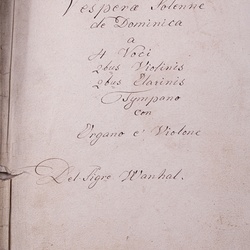 Vesperæ Solenne
de Dominica
a
4 Voci
2bus Violinis
2bus Clarinis
Tympano
con
Organo e Violone
Del Sigre Wanhal.